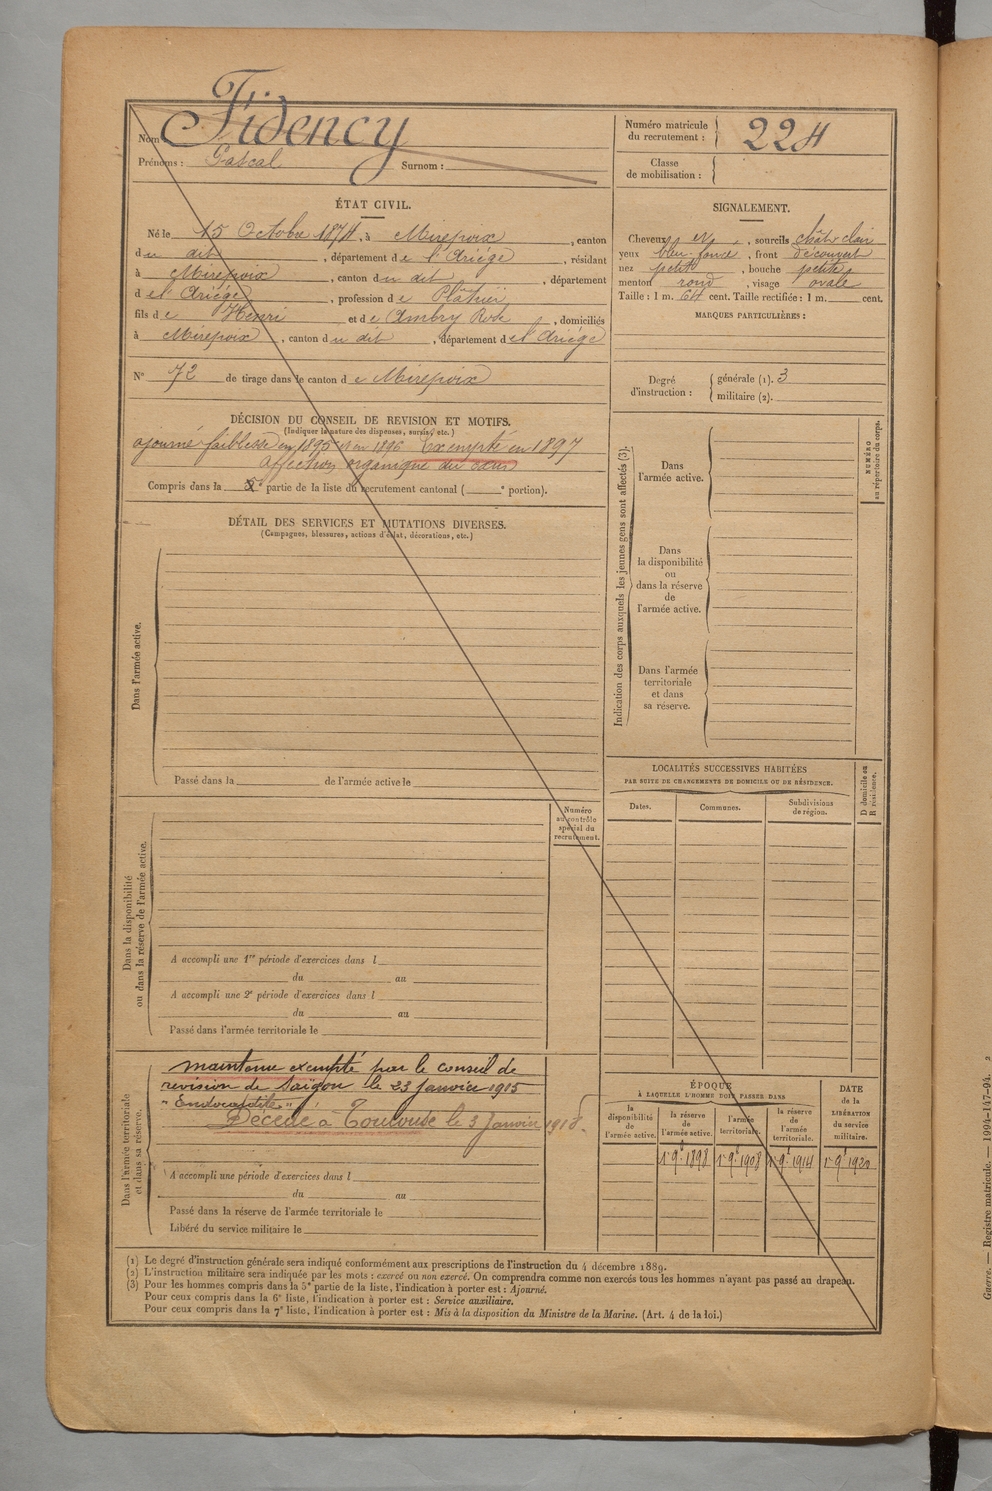 Nom : Fidency
Prénoms : Pascal Surnom :
Numéro matricule du recrutement : 224
Classe de mobilisation :
ÉTAT CIVIL.
Né le 15 Octobre 1874, à Mirepoix, canton
du dit, département de l'Ariège, résidant
à Mirepoix, canton du dit, département
de l'Ariège, profession de Plâtrier
fils de Henri et de Rose, domiciliés
à Mirepoix, canton du dit, département de l'Ariège
N° 72 de tirage dans le canton de Mirepoix
SIGNALEMENT.
Cheveux et, sourcils chât. clair
yeux bleu foncé, front découvert
nez petit, bouche petite
menton rond, visage ovale
Taille : 1 m. 64 cent. Taille rectifiée : 1 m. cent.
MARQUES PARTICULIÈRES :
Degré d'instruction :
générale (1). 3
militaire (2).
DÉCISION DU CONSEIL DE REVISION ET MOTIFS.
(Indiquer la nature des dispenses, sursis, etc.)
ajourné faiblesse en 1895 et en 1896 Exempté en 1897
affection organique du cœur
Compris dans la partie de la liste du recrutement cantonal ( ° portion).
DÉTAIL DES SERVICES ET MUTATIONS DIVERSES.
(Campagnes, blessures, actions d'éclat, décorations, etc.)
Dans l'armée active.
Passé dans la de l'armée active le
Indication des corps auxquels les jeunes gens sont affectés (3).
Dans
l'armée active.
Dans
la disponibilité
ou
dans la réserve
de
l'armée active.
Dans l'armée
territoriale
et dans
sa réserve.
NUMÉRO
au répertoire du corps.
LOCALITÉS SUCCESSIVES HABITÉES
PAR SUITE DE CHANGEMENTS DE DOMICILE OU DE RÉSIDENCE.
Dates.
Communes.
Subdivisions
de région.
D domicile ou
R résidence.
Numéro
au contrôle
spécial du
recrutement.
Dans la disponibilité
ou dans la réserve de l'armée active.
A accompli une 1re période d'exercices dans l
du au
A accompli une 2e période d'exercices dans l
du au
Passé dans l'armée territoriale le
Dans l'armée territoriale
et dans sa réserve.
maintenu exempté par le conseil de
revision de Saïgon le 23 Janvier 1915
"Endocardite"
Décédé à Toulouse le 3 Janvier 1918.
A accompli une période d'exercices dans l
du au
Passé dans la réserve de l'armée territoriale le
Libéré du service militaire le
ÉPOQUE
À LAQUELLE L'HOMME DOIT PASSER DANS
la
disponibilité
de
l'armée active.
la réserve
de
l'armée active.
l'armée
territoriale.
la réserve
de
l'armée
territoriale.
DATE
de la
LIBÉRATION
du service
militaire.
1er 9bre 1898 1er 9bre 1908 1er 9bre 1914 1er 9bre 1920
(1) Le degré d'instruction générale sera indiqué conformément aux prescriptions de l'instruction du 4 décembre 1889.
(2) L'instruction militaire sera indiquée par les mots : exercé ou non exercé. On comprendra comme non exercés tous les hommes n'ayant pas passé au drapeau.
(3) Pour les hommes compris dans la 5e partie de la liste, l'indication à porter est : Ajourné.
Pour ceux compris dans la 6e liste, l'indication à porter est : Service auxiliaire.
Pour ceux compris dans la 7e liste, l'indication à porter est : Mis à la disposition du Ministre de la Marine. (Art. 4 de la loi.)
Guerre. — Registre matricule. — 1994-147-94. 2